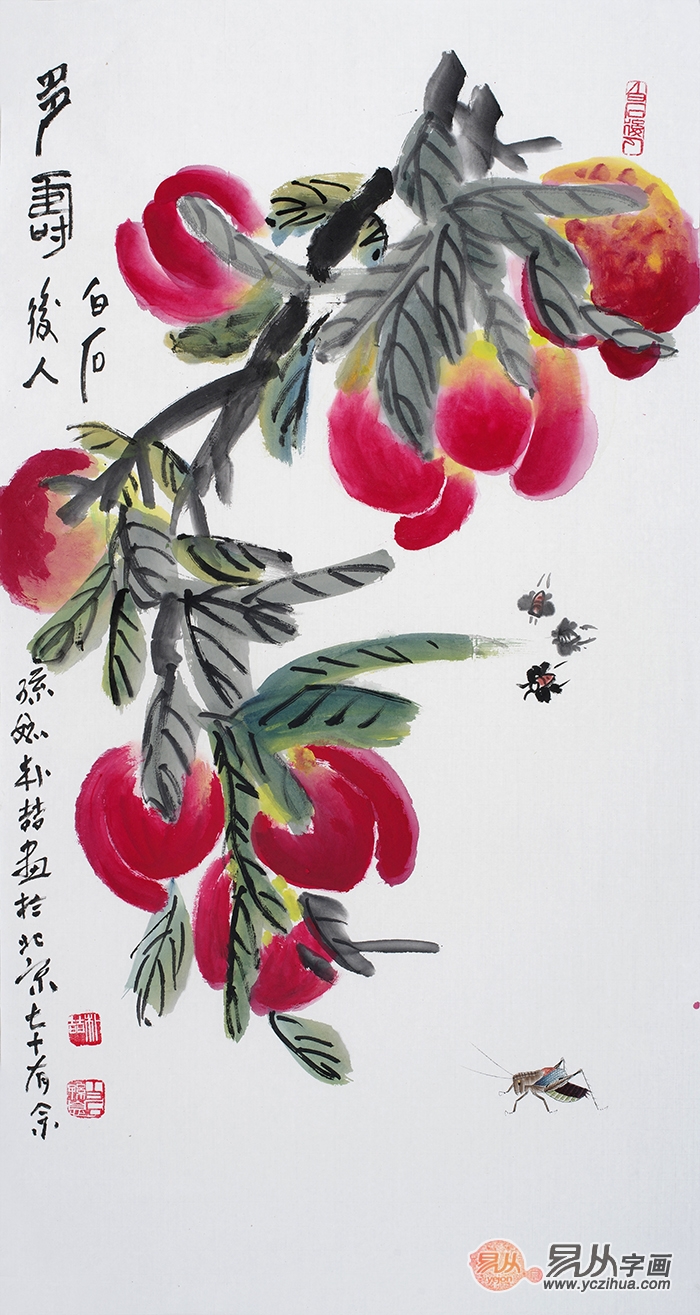 多壽
白石
後人
孫媳朴喆畫於北京七十有余
白石後人
易从字画
www.yczihua.com
yiyigon